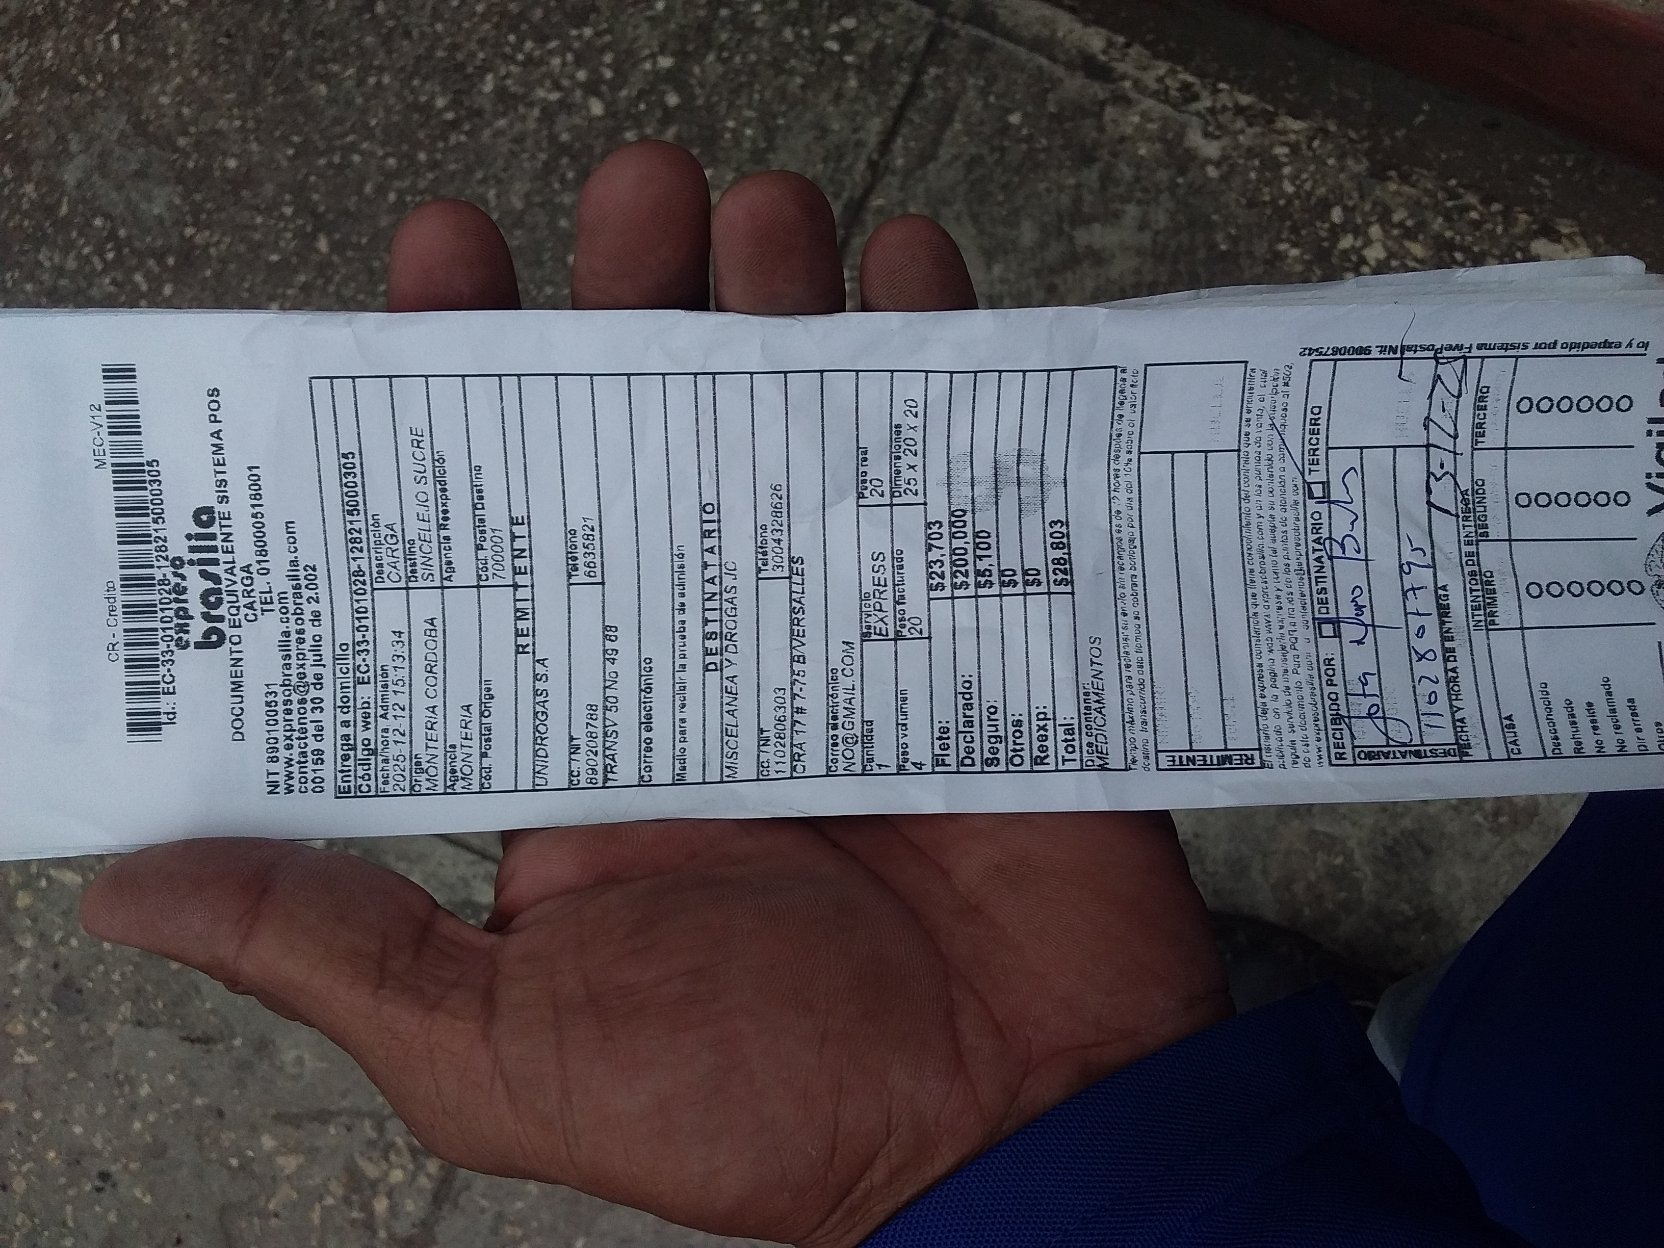 CR - Credito MEC-V12
Id.: EC-33-0101028-128215000305
expreso
brasilia
DOCUMENTO EQUIVALENTE SISTEMA POS
CARGA
TEL. 018000518001
NIT 890100531
www.expresobrasilia.com
contactenos@expresobrasilia.com
00159 del 30 de julio de 2.002
Entrega a domicilio
Código web: EC-33-0101028-128215000305
Fecha/hora Admisión Descripción
2025-12-12 15:13:34 CARGA
Origen Destino
MONTERIA CORDOBA SINCELEJO SUCRE
Agencia Agencia Reexpedición
MONTERIA
Cód. Postal Origen Cód. Postal Destino
700001
REMITENTE
UNIDROGAS S.A
CC. / NIT Teléfono
890208788 6635821
TRANSV 50 No 49 68
Correo electrónico
Medio para recibir la prueba de admisión
DESTINATARIO
MISCELANEA Y DROGAS JC
CC. / NIT Teléfono
1102806303 3004328626
CRA 17 # 7-75 B/VERSALLES
Correo electrónico
NO@GMAIL.COM
Cantidad Servicio Peso real
1 EXPRESS 20
Peso volumen Peso facturado Dimensiones
4 20 25 x 20 x 20
Flete: $23,703
Declarado: $200,000
Seguro: $5,100
Otros: $0
Reexp: $0
Total: $28,803
Dice contener:
MEDICAMENTOS
REMITENTE
RECIBIDO POR: DESTINATARIO TERCERO
DESTINATARIO
1102801795
FECHA Y HORA DE ENTREGA 13-12-25
INTENTOS DE ENTREGA
CAUSA PRIMERO SEGUNDO TERCERO
Desconocido
Rehusado
No reside
No reclamado
Dir errada
Otros
lo y expedido por sistema FivePostal Nit. 900087542